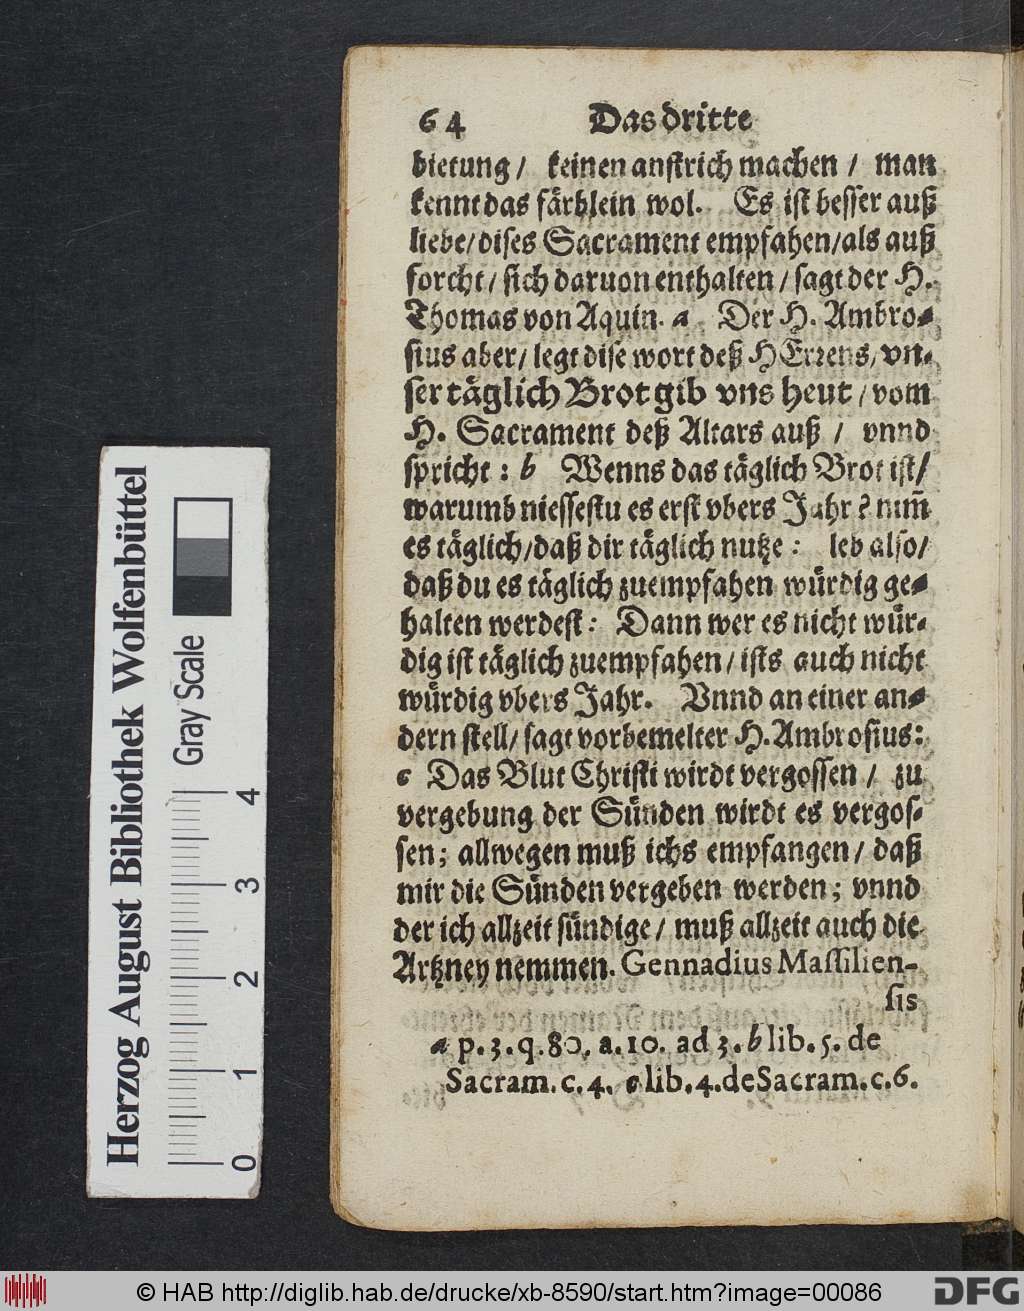 64 Das dritte
bietung / keinen anstrich machen / man
kennt das färblein wol. Es ist besser auß
liebe / dises Sacrament empfahen / als auß
forcht / sich daruon enthalten / sagt der H.
Thomas von Aquin. a Der H. Ambro-
sius aber / legt dise wort deß HErrens, vn-
ser täglich Brot gib vns heut / vom
H. Sacrament deß Altars auß / vnnd
spricht : b Wenns das täglich Brot ist /
warumb niessestu es erst vbers Jahr ? nim̃
es täglich / daß dir täglich nutze : leb also /
daß du es täglich zuempfahen würdig ge-
halten werdest : Dann wer es nicht wür-
dig ist täglich zuempfahen / ists auch nicht
würdig vbers Jahr. Vnnd an einer an-
dern stell / sagt vorbemelter H. Ambrosius :
c Das Blut Christi wirdt vergossen / zu
vergebung der Sünden wirdt es vergos-
sen ; allwegen muß ichs empfangen / daß
mir die Sünden vergeben werden ; vnnd
der ich allzeit sündige / muß allzeit auch die
Artzney nemmen. Gennadius Massilien-
sis
a p. 3. q. 80. a. 10. ad 3. b lib. 5. de
Sacram. c. 4. c lib. 4. de Sacram. c. 6.
Herzog August Bibliothek Wolfenbüttel
Gray Scale
0 1 2 3 4
© HAB http://diglib.hab.de/drucke/xb-8590/start.htm?image=00086
DFG